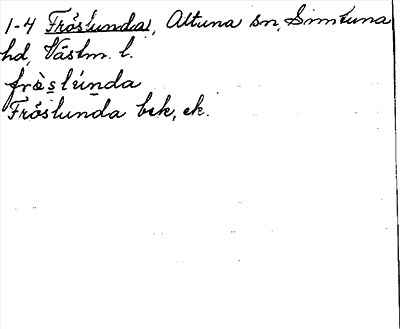 1-4 Fröslunda, Altuna sn, Simtuna
hd, Västm. l.
frò̀slúnda
Fröslunda bek, ek.